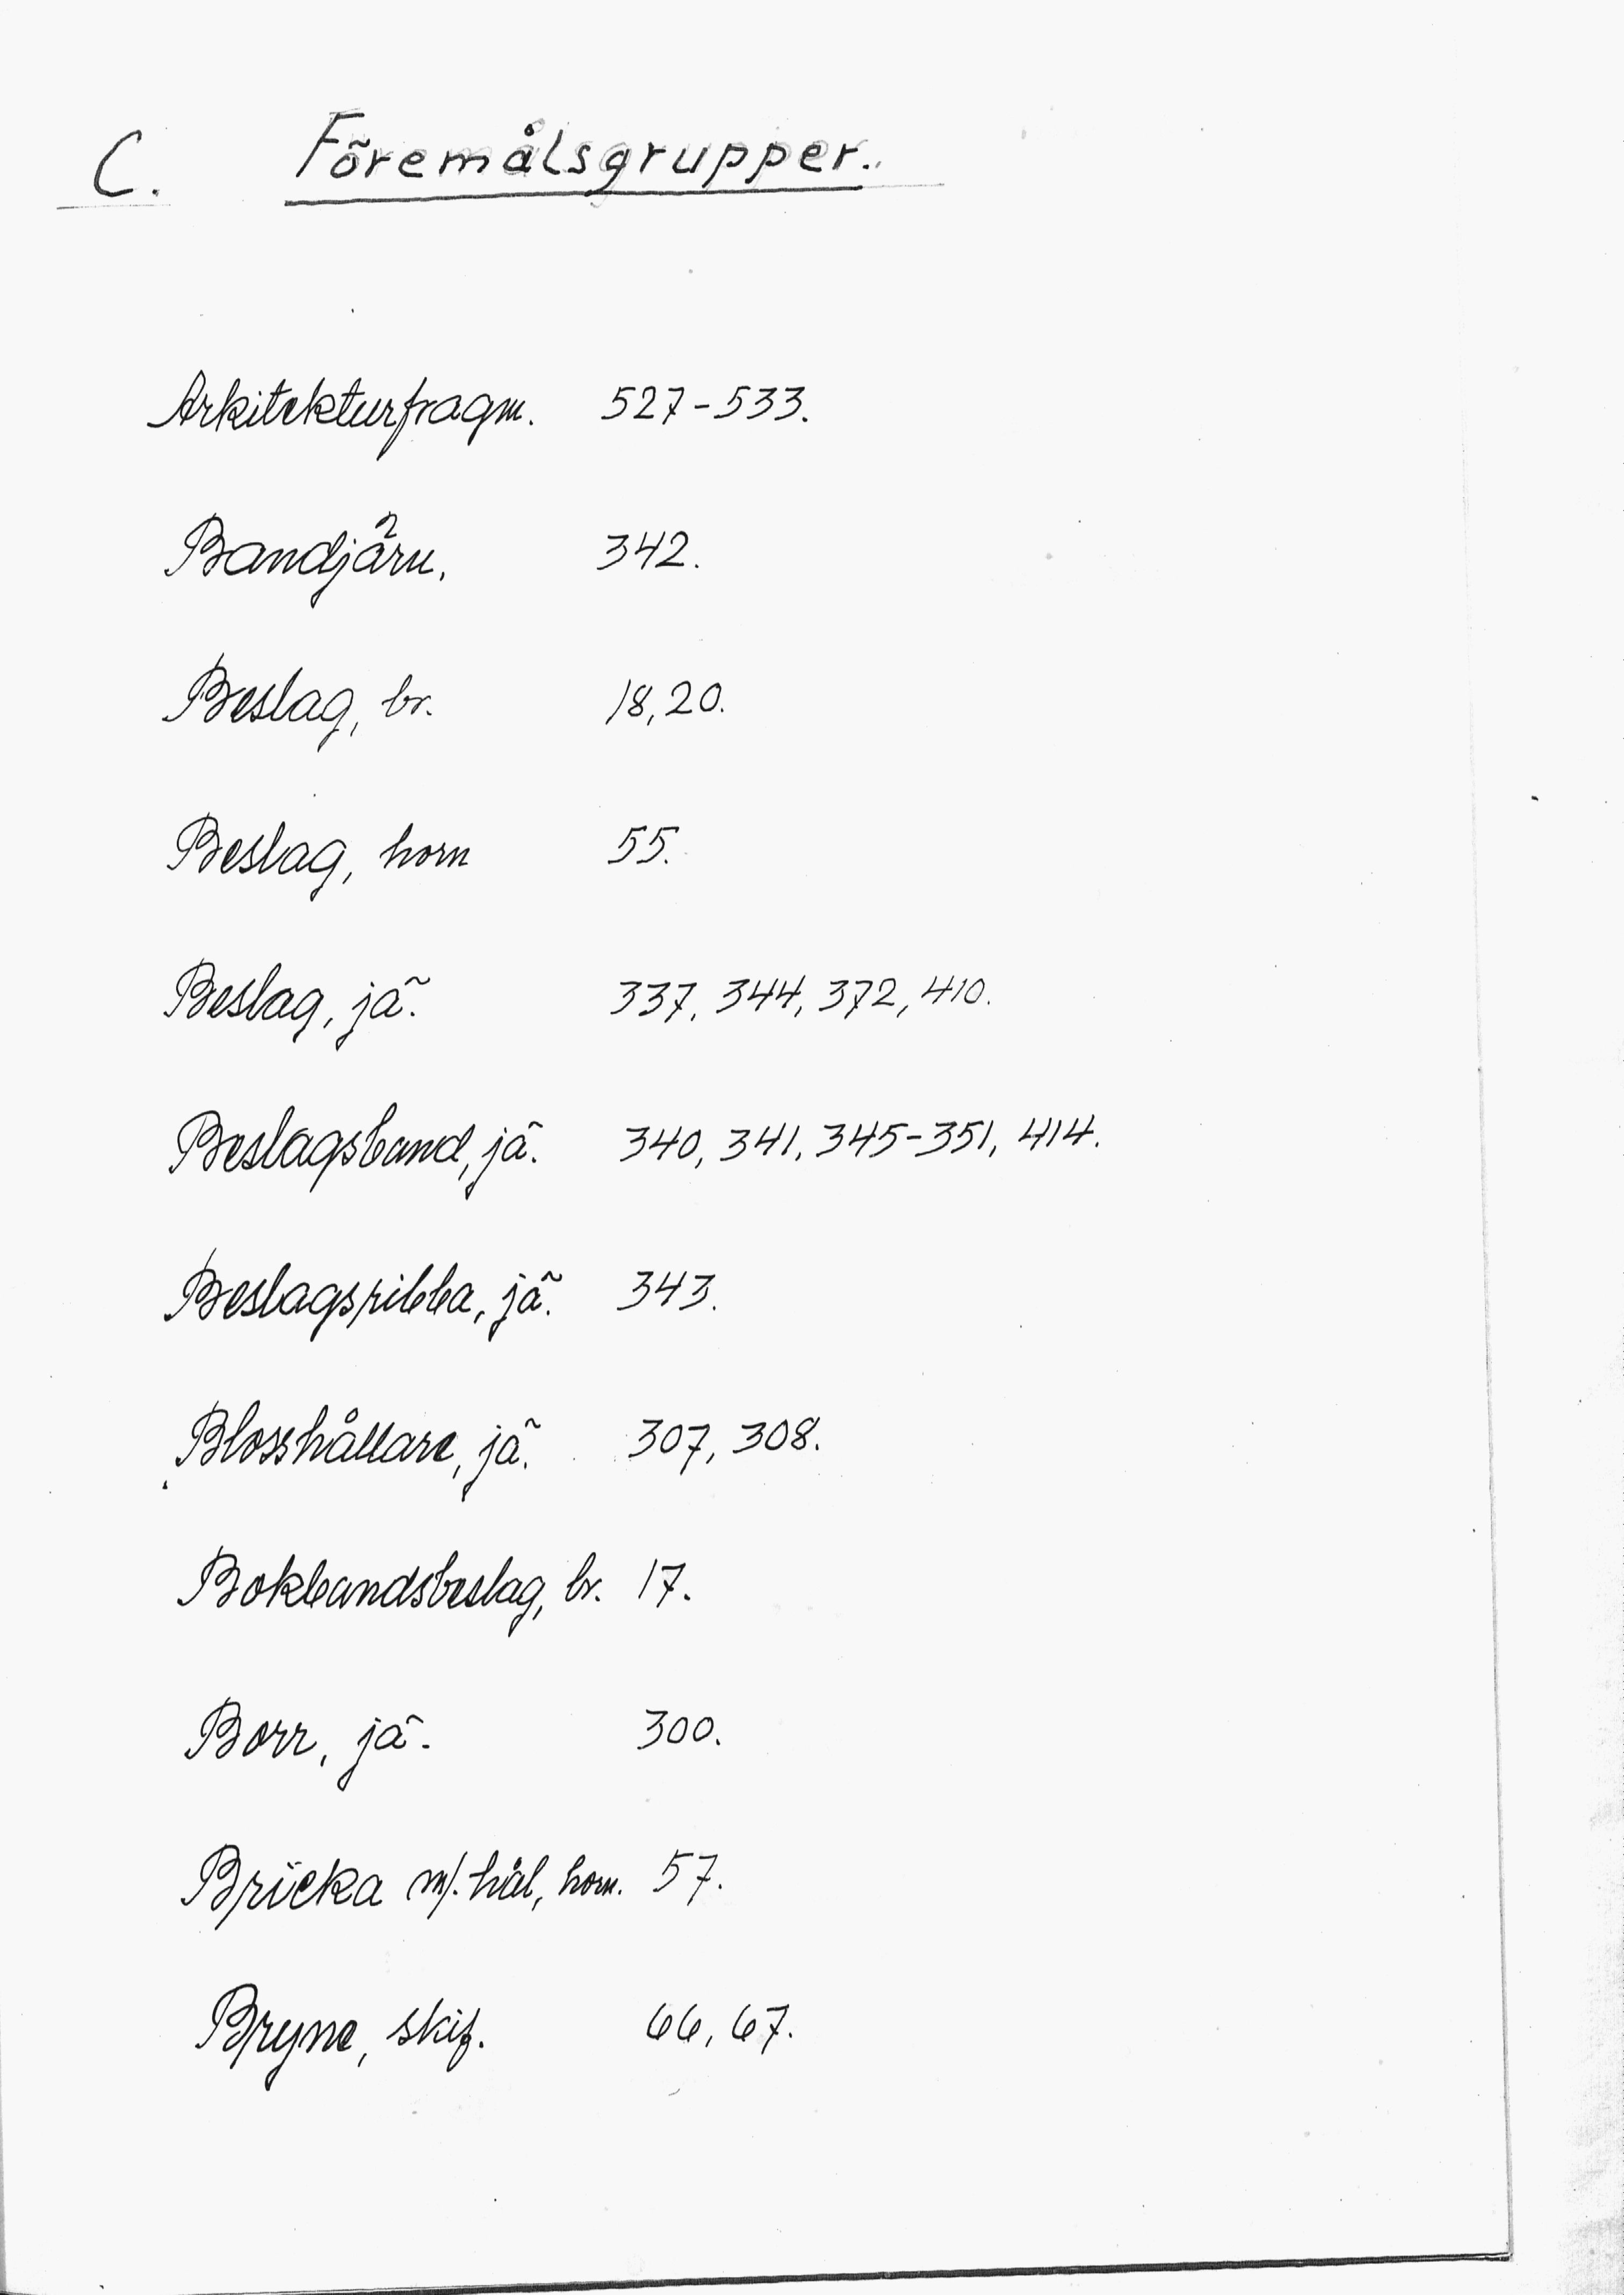 C. Föremålsgrupper.
Arkitekturfragm. 527-533.
Bandjärn. 342.
Beslag, br. 18, 20.
Beslag, horn 55.
Beslag, jä. 337, 344, 372, 410.
Beslagsband, jä. 340, 341, 345-351, 414.
Beslagsribba, jä. 343.
Blosshållare, jä. 307, 308.
Bokbandsbeslag, br. 17.
Borr, jä. 300.
Bricka m/. hål, horn. 57.
Bryne, skif. 66, 67.